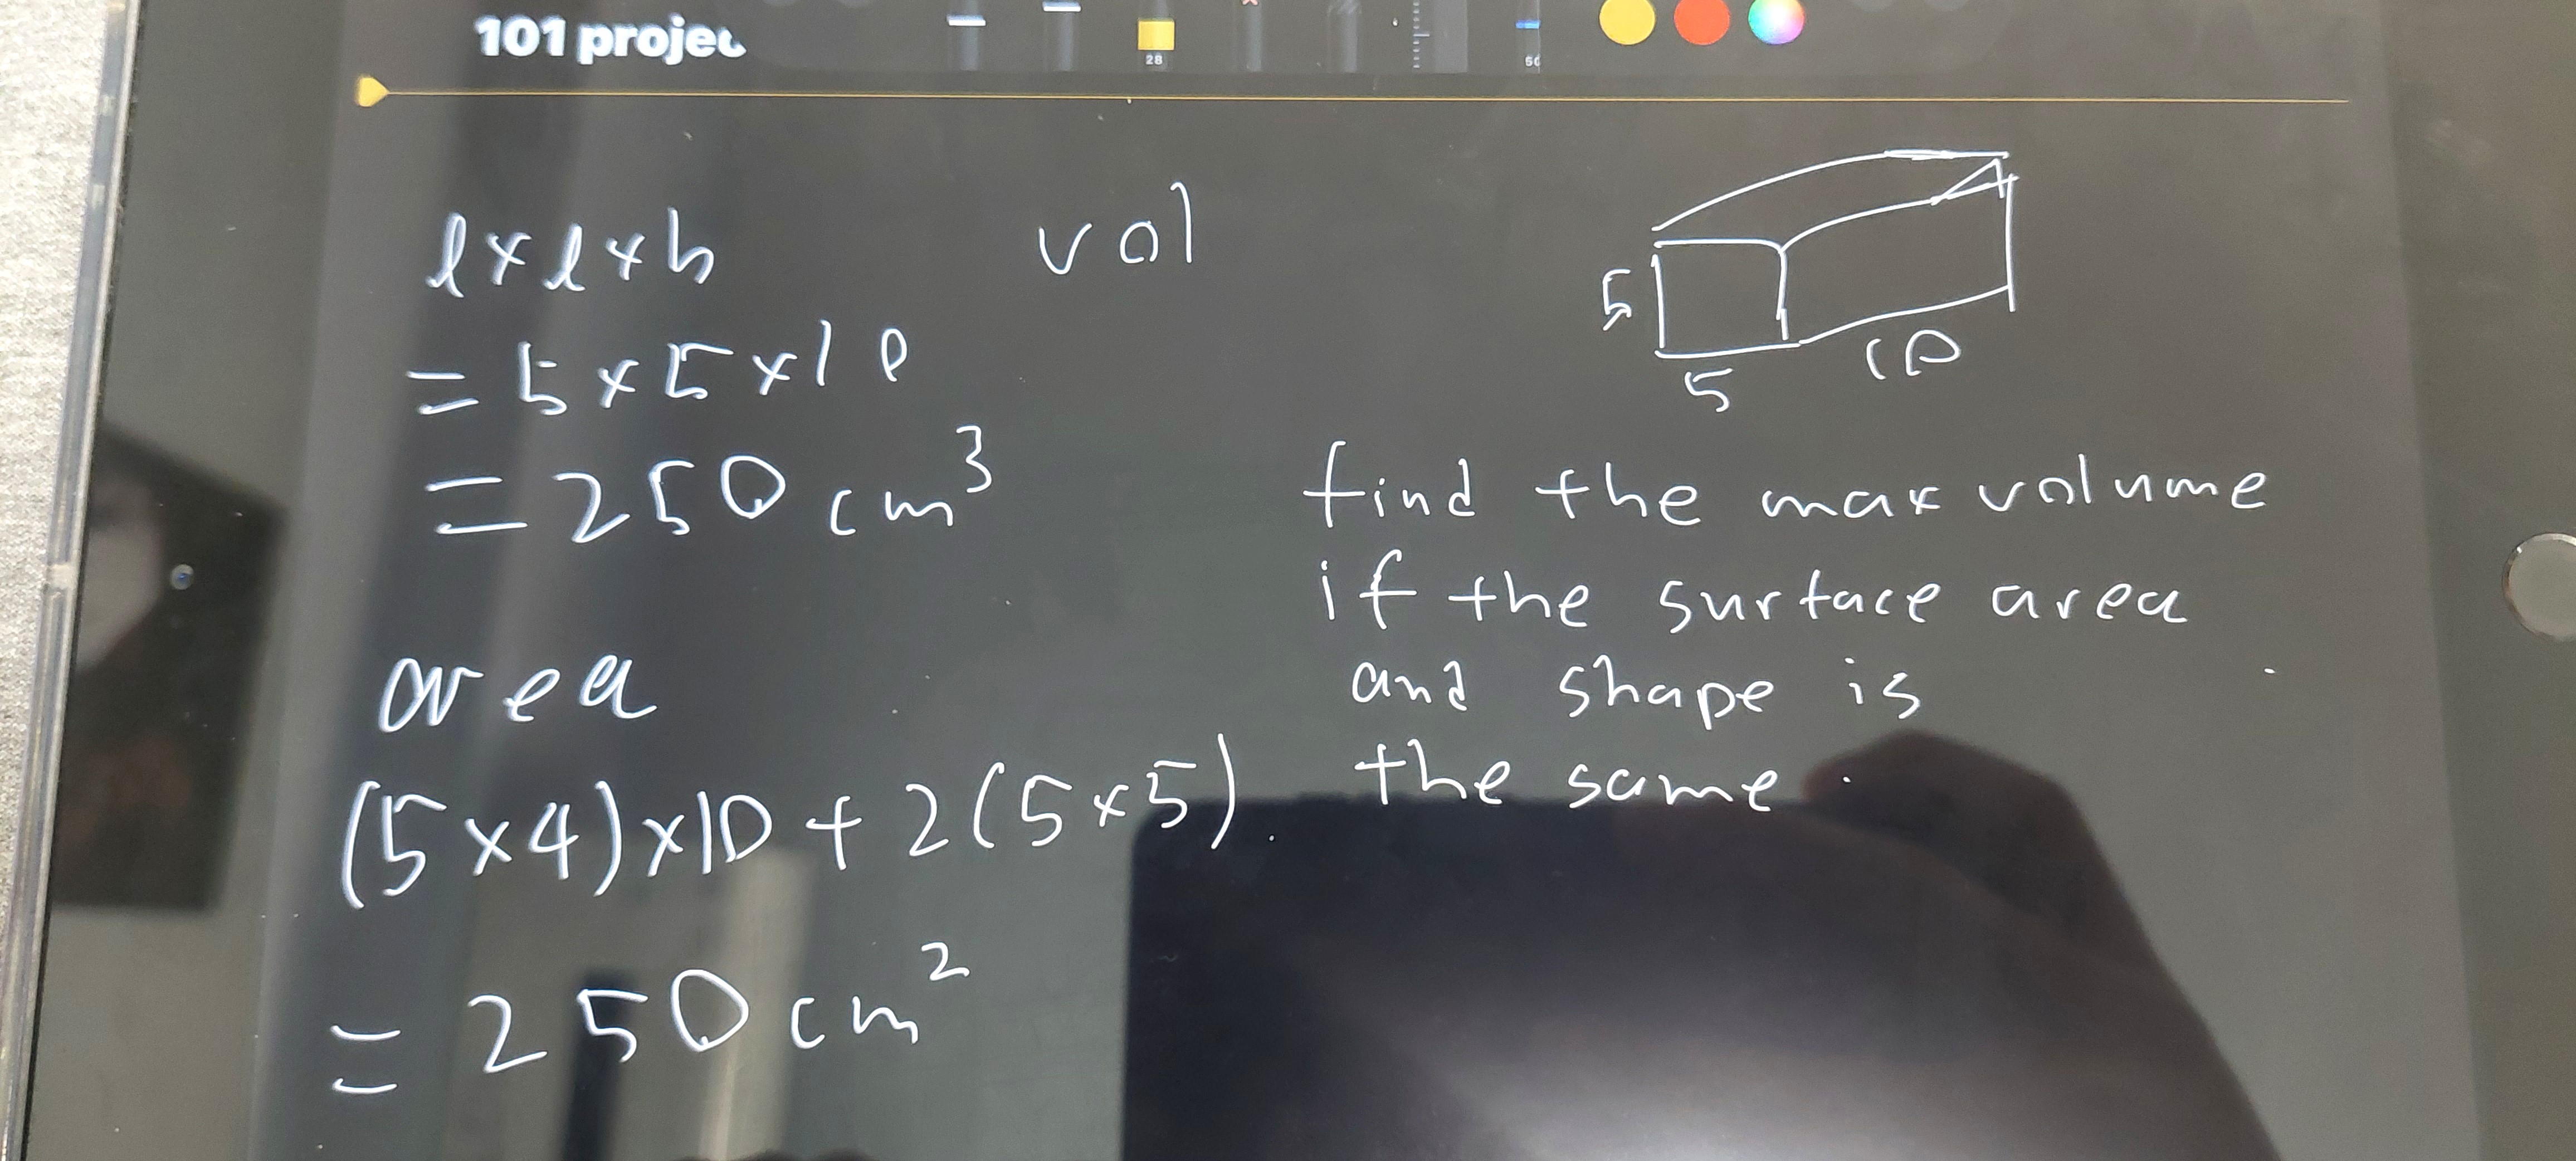 101 projec
28
50
l x l x h
vol
= 5 x 5 x 10
= 250 cm³
5
5
10
find the max volume
if the surface area
and shape is
the same.
area
(5 x 4) x 10 + 2(5 x 5).
= 250 cm²